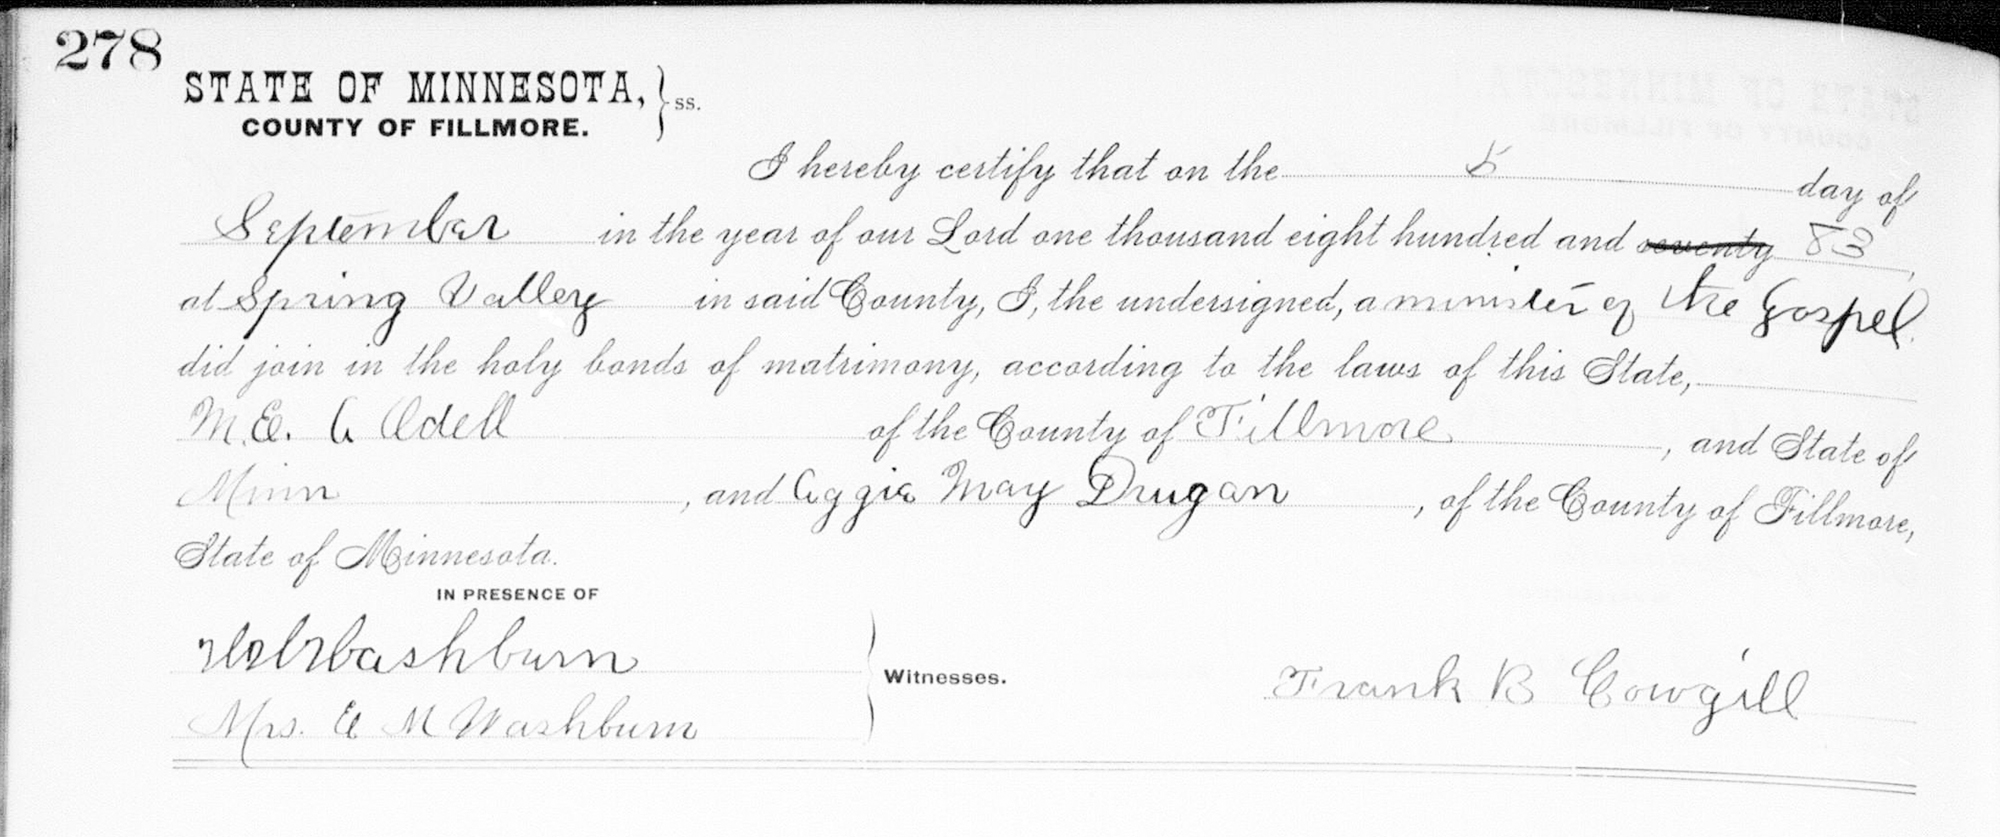 278
STATE OF MINNESOTA, } ss.
COUNTY OF FILLMORE.
I hereby certify that on the 5 day of
September in the year of our Lord one thousand eight hundred and seventy 83,
at Spring Valley in said County, I, the undersigned, a minister of the Gospel
did join in the holy bonds of matrimony, according to the laws of this State,
M. E. A Odell of the County of Fillmore, and State of
Minn, and Aggie May Drugan, of the County of Fillmore,
State of Minnesota.
IN PRESENCE OF
Washburn
Witnesses. Frank B Cowgill
Mrs. E M Washburn